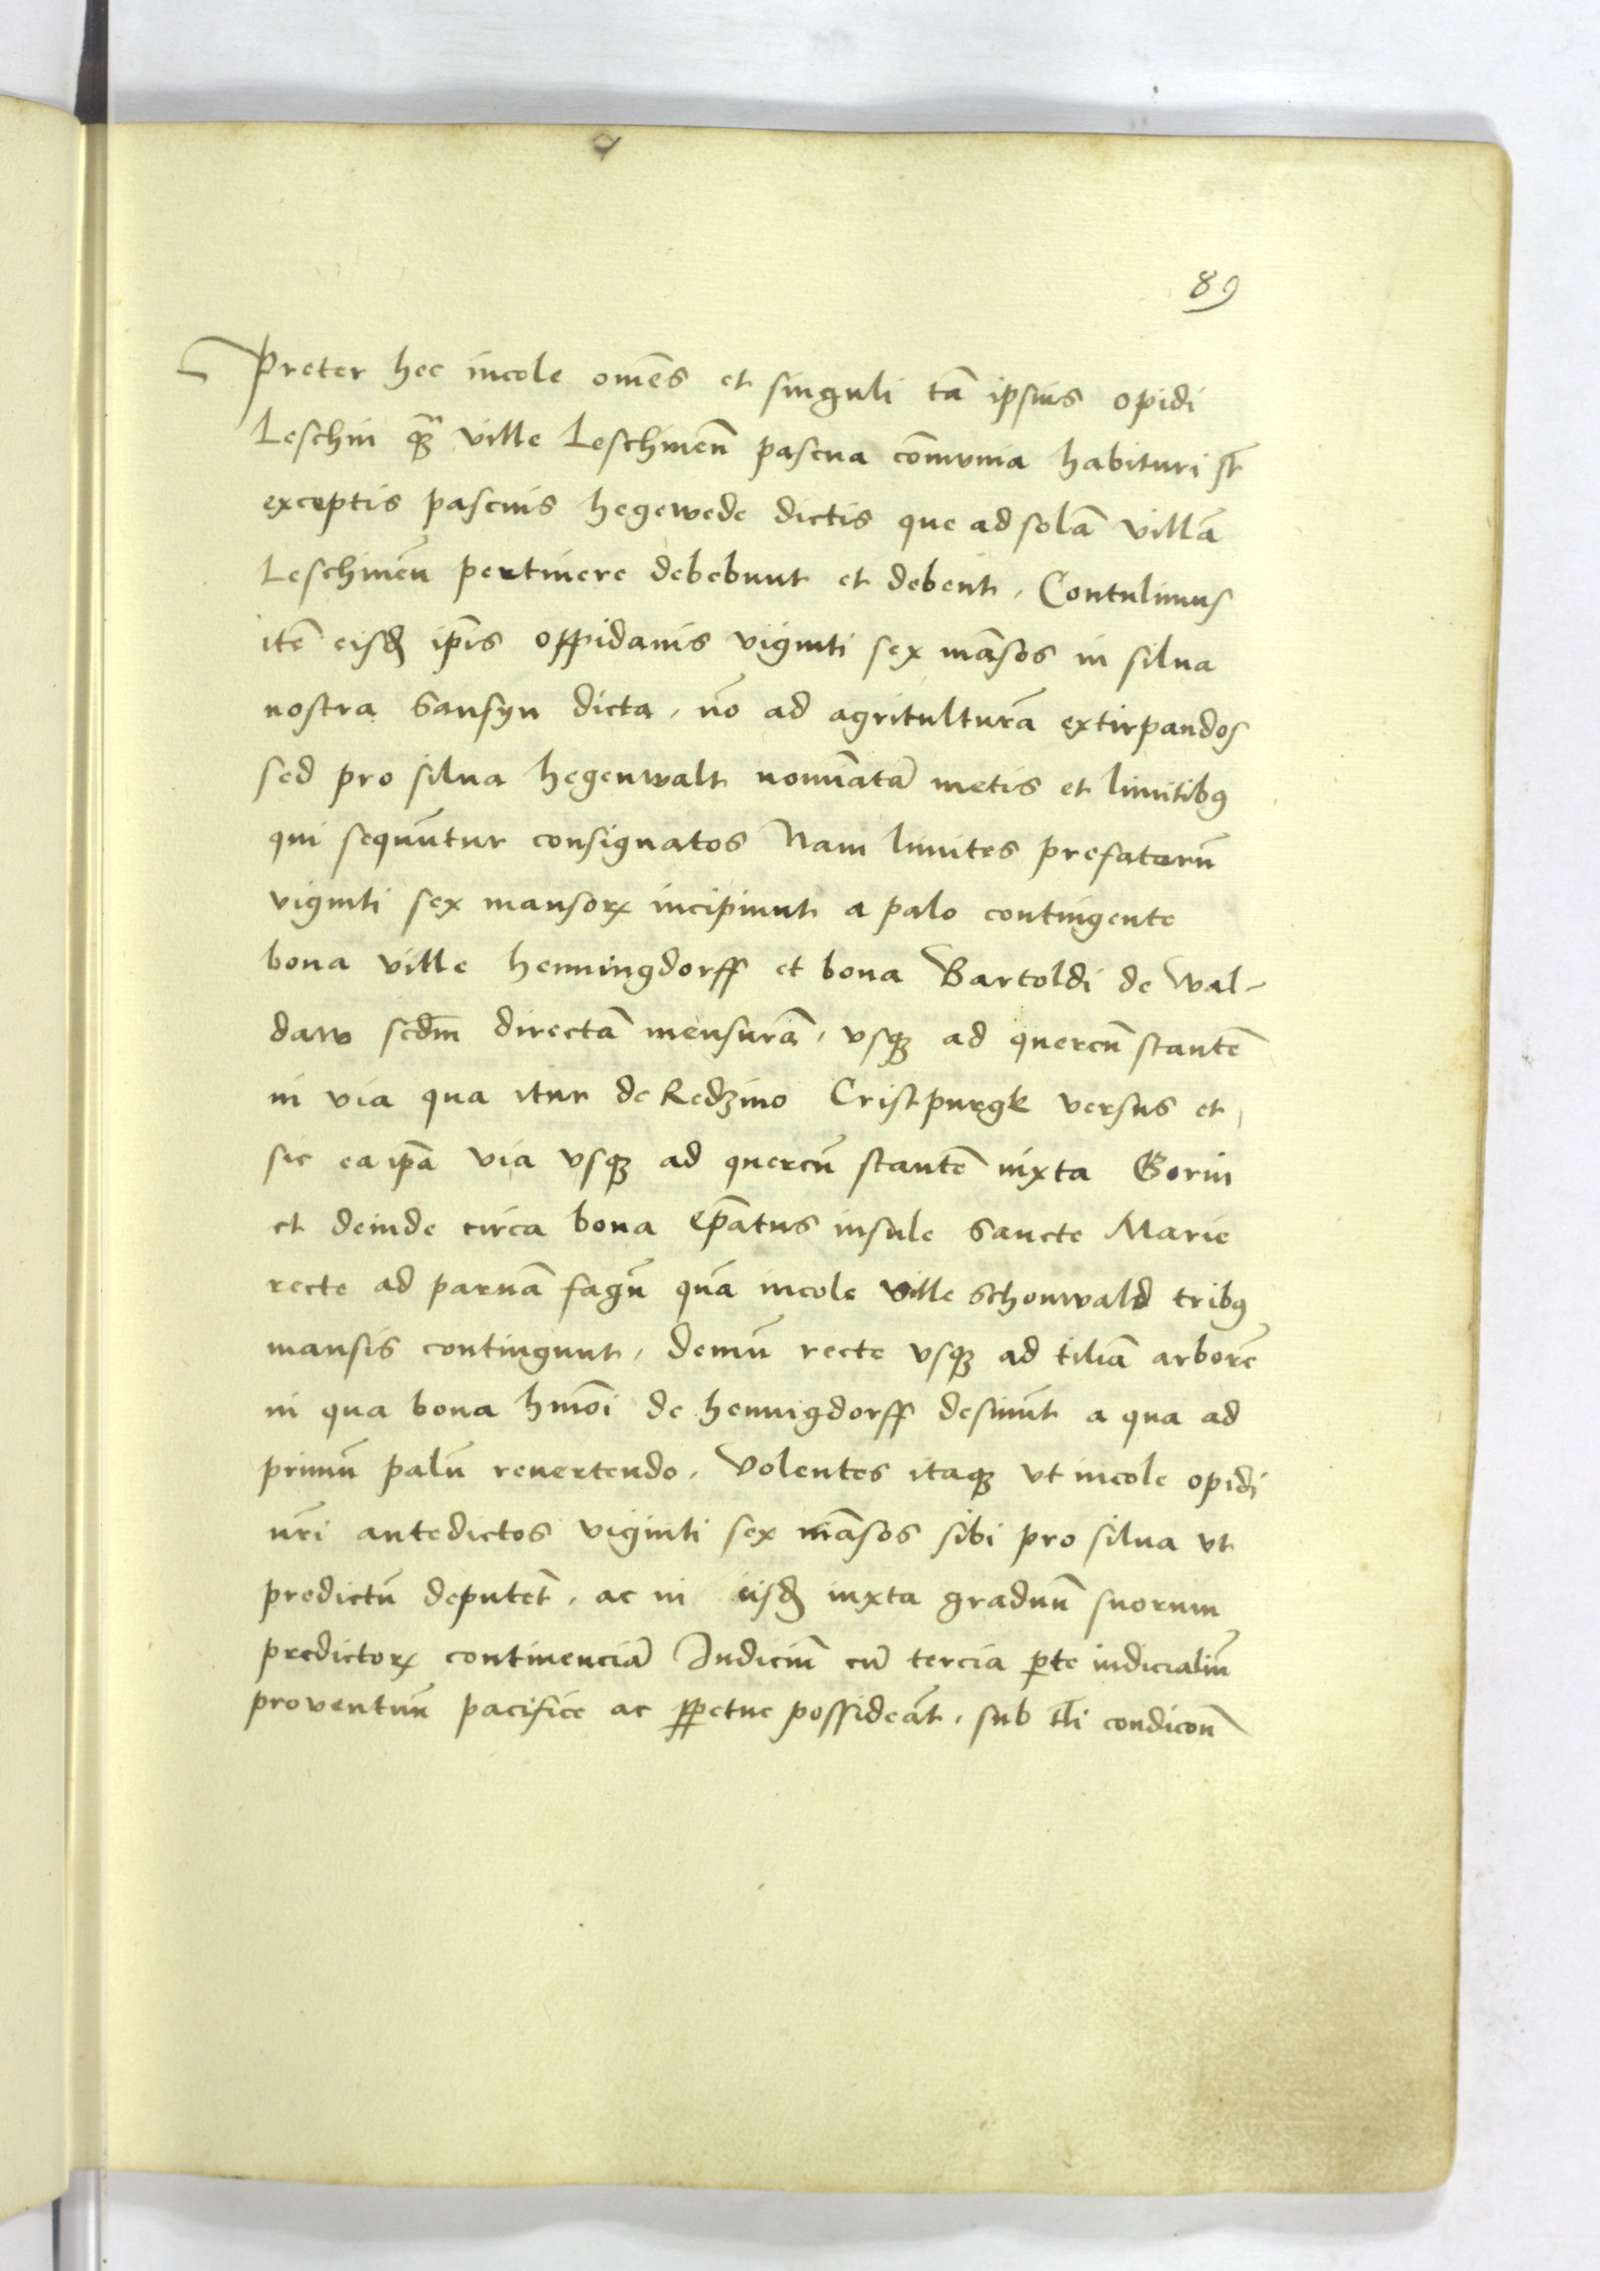 89
Preter hec incole om̃es et singuli tã ipsius opidi
Leschin qꝫ ville Leschineñ pascua cõmunia habituri st̃
exceptis pascuis hegewede dictis que ad solã villã
Leschineñ pertinere debebunt et debent, Contulimus
itẽ eisdꝫ ip̃is oppidanis viginti sex mãsos in silua
nostra Sansyn dicta, nõ ad agriculturã extirpandos
sed pro silua hegenwalt nominatã metis et limitibꝫ
qui sequũtur consignatos Nam limites prefatorũ
viginti sex mansoꝝ incipiunt a palo contingente
bona ville henningdorff et bona Bartoldi de Wal-
daw scd̃m directã mensurã, vsqꝫ ad quercũ stantẽ
in via qua itur de Redzino Cristpurgk versus et,
sic ea ip̃a via vsqꝫ ad quercũ stantẽ iuxta Gorin
et deinde circa bona ep̃atus insule Sancte Marie
recte ad paruã fagũ quã incole ville Schonwald tribꝫ
mansis contingunt, demũ recte vsqꝫ ad tiliã arborẽ
in qua bona hmõi de hennigdorff desinũt a qua ad
primũ palũ reuertendo, Volentes itaqꝫ vt incole opidi
nr̃i antedictos viginti sex mãsos sibi pro silua vt
predictũ deputet̃, ac in iisdꝫ iuxta graduũ suorum
predictoꝝ continenciã Iudiciũ cũ tercia ꝑte iudicialiũ
prouentuũ pacifice ac ꝑpetue possideãt, sub tl̃i condicoñ